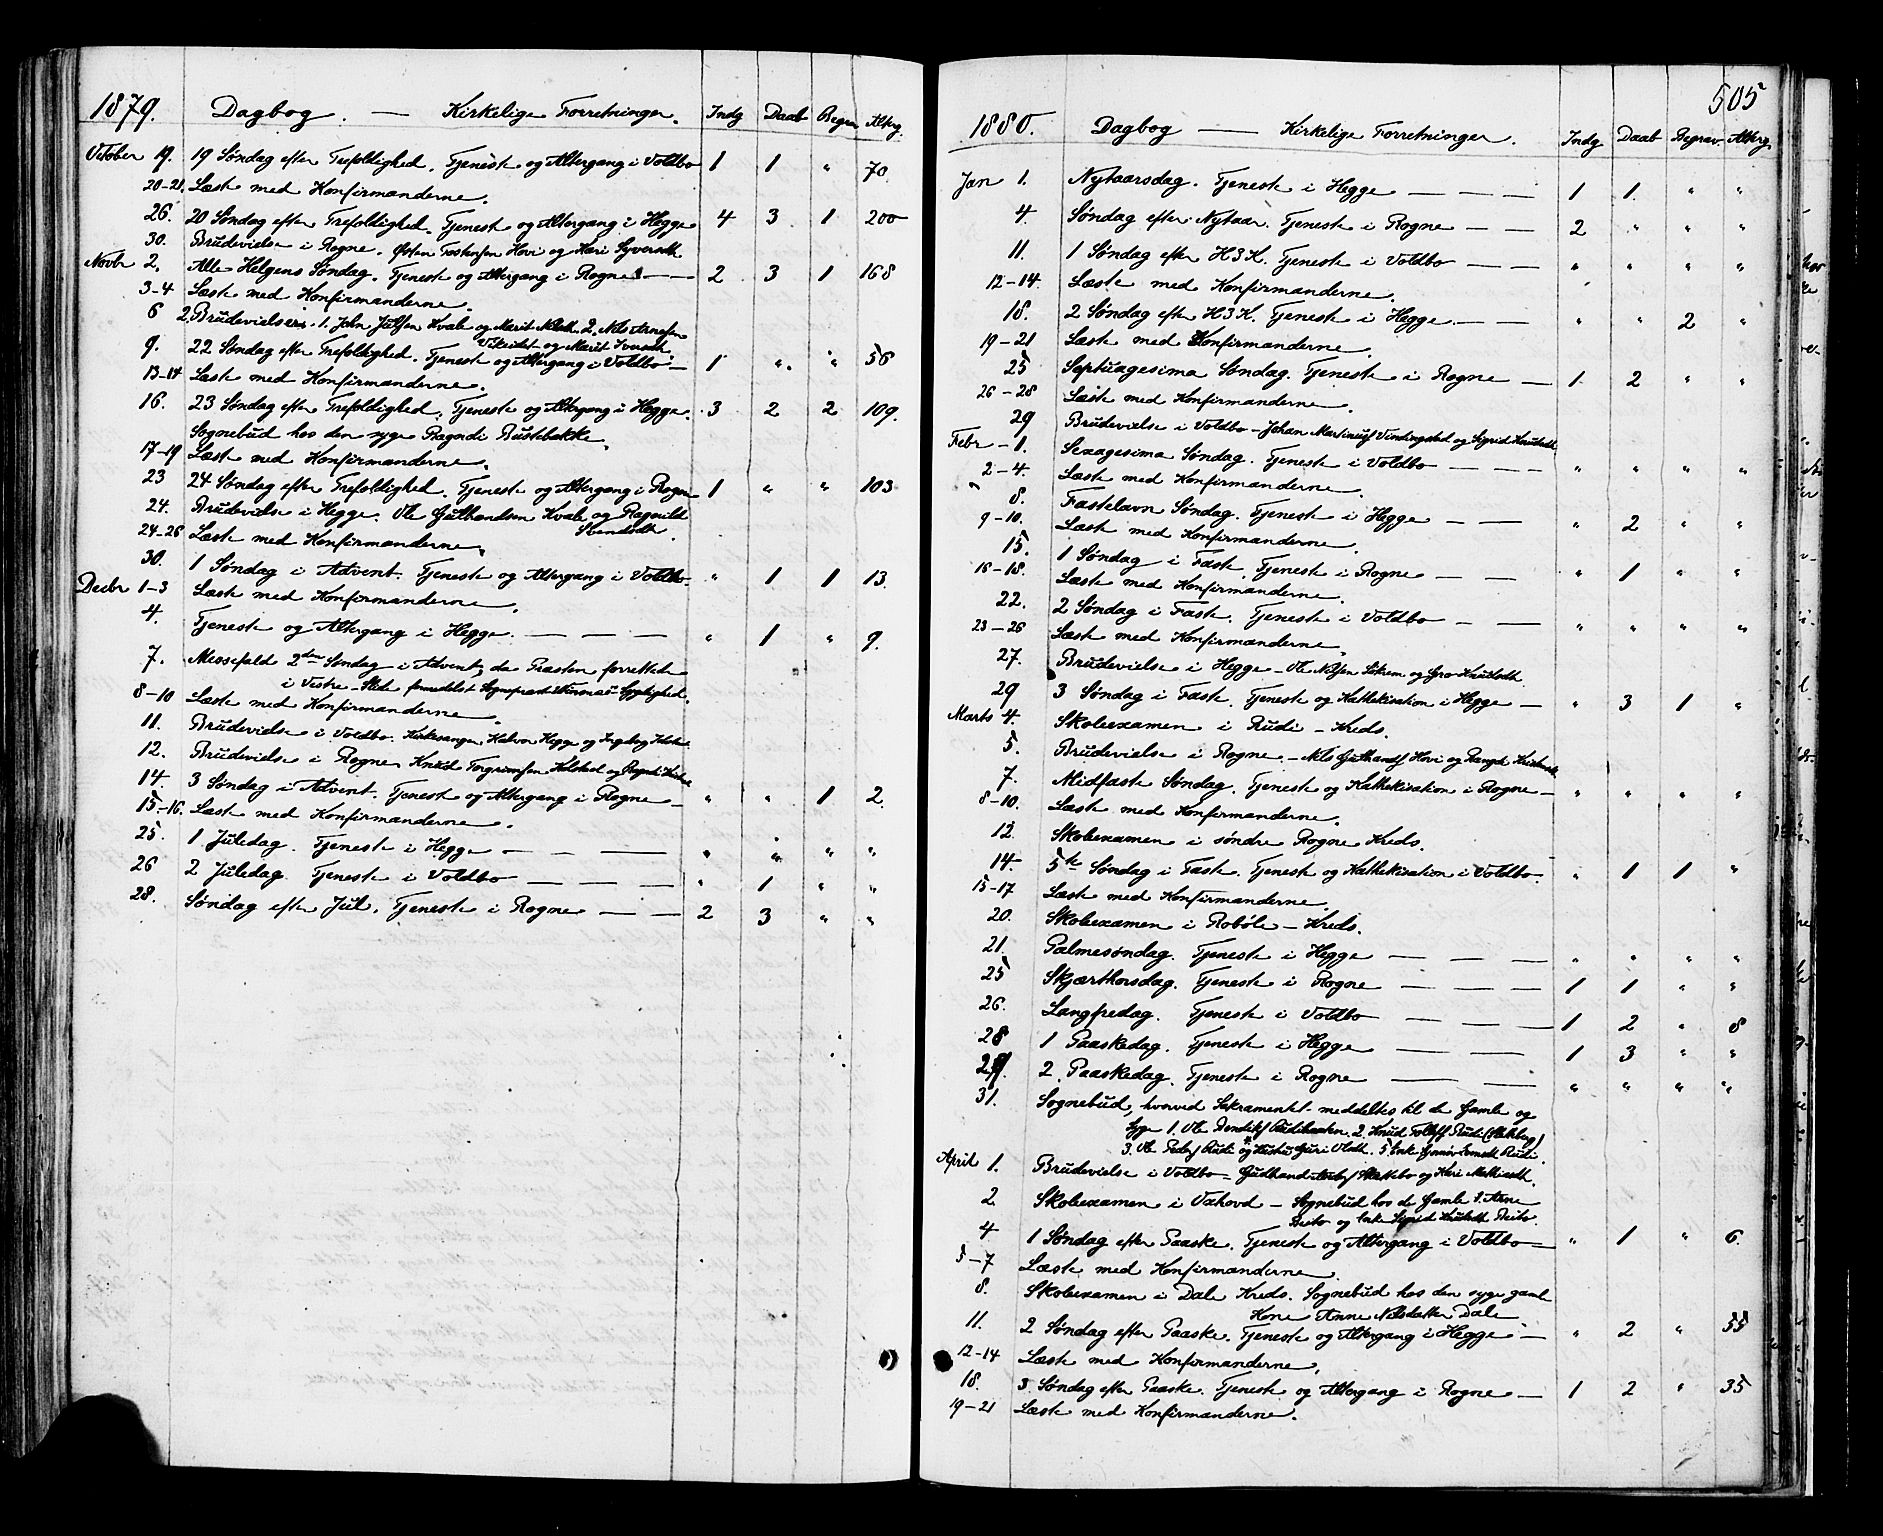 1879. Dagbog. — Kirkelige Forretninger. Indg Daab Begrav Alterg.
October 19. 19 Søndag efter Trefoldighed. Tjeneste og Altergang i Voldbo 1 1 " 70.
20-21. Læste med Konfirmanderne.
26. 20 Søndag efter Trefoldighed. Tjeneste og Altergang i Hegge 4 3 1 200
30. Brudevielse i Rogne. Østen Tostensen Hovi og Kari Syversdt
Novbr 2. Alle Helgens Søndag. Tjeneste og Altergang i Rogne — 2 3 1 168
3-4 Læste med Konfirmanderne.
6 2 Brudevielser. 1. John Julsen Kvale og Marit Nilsdt. 2. Nils Arnesen
og Marit Iversdt
9. 22 Søndag efter Trefoldighed. Tjeneste og Altergang i Voldbo — 1 " " 56
13-14 Læste med Konfirmanderne.
16. 23 Søndag efter Trefoldighed. Tjeneste og Altergang i Hegge. 3 2 2 109.
Sognebud hos den syge Ragndi Rustebakke.
17-19 Læste med Konfirmanderne.
23 24 Søndag efter Trefoldighed. Tjeneste og Altergang i Rogne 1 " " 103
24. Brudevielse i Hegge. Ole Gulbrandsen Kvale og Ragnild
24-26 Læste med Konfirmanderne.
30. 1 Søndag i Advent. Tjeneste og Altergang i Voldbo " 1 1 13.
Decbr 1-3 Læste med Konfirmanderne.
4. Tjeneste og Altergang i Hegge. — — — " 1 " 9.
7. Messefald 2den Søndag i Advent, da Præsten forrettede
i Vestre-Slidre formedelst Sognepræst Sygelighed.
8-10 Læste med Konfirmanderne.
11. Brudevielse i Voldbo. Kirkesanger Halvor Hegge og Ingeborg
12. Brudevielse i Rogne. Knud Torgrimsen Kolstad og Ragndi
14. 3 Søndag i Advent. Tjeneste og Altergang i Rogne — " " 1 2.
15-16. Læste med Konfirmanderne.
25. 1 Juledag. Tjeneste i Hegge — — — " " " "
26 2 Juledag. Tjeneste i Voldbo — — — " 1 " "
28. Søndag efter Jul. Tjeneste i Rogne — — 2 3 " "
505
1880. Dagbog — Kirkelige Forretninger. Indg Daab Begrav. Alterg.
Jan 1. Nytaarsdag. Tjeneste i Hegge — — — 1 1. " "
4 Søndag efter Nytaar. Tjeneste i Rogne — — 2 " " "
11. 1 Søndag efter H3K. Tjeneste i Voldbo — — " " " "
12-14. Læste med Konfirmanderne.
18. 2 Søndag efter H3K. Tjeneste i Hegge. — — " " 2 "
19-21 Læste med Konfirmanderne.
25 Septuagesima Søndag. Tjeneste i Rogne — 1 2 " "
26-28 Læste med Konfirmanderne.
29 Brudevielse i Voldbo - Johan Martinus Vindingstad og Sigrid Knudsdt
Febr - 1. Sexagesima Søndag. Tjeneste i Voldbo — — — " " " "
2-4. Læste med Konfirmanderne.
8. Fastelavn Søndag. Tjeneste i Hegge — — " 2 " "
9-10. Læste med Konfirmanderne.
15. 1 Søndag i Faste. Tjeneste i Rogne — — " 1 " "
16-18. Læste med Konfirmanderne.
22. 2 Søndag i Faste. Tjeneste i Voldbo — — " " " "
23-26 Læste med Konfirmanderne.
27. Brudevielse i Hegge - Ole Nilsen og Gro Knudsdt.
29 3 Søndag i Faste. Tjeneste og Kathekisation i Hegge — " 3 1 "
Marts 4. Skoleexamen i Rudi - Kreds.
5. Brudevielse i Rogne. - Nils Hovi og
7. Midfaste Søndag. Tjeneste og Kathekisation i Rogne — " " " "
8-10. Læste med Konfirmanderne.
12. Skoleexamen i søndre Rogne Kreds.
14. 5te Søndag i Faste. Tjeneste og Kathekisation i Voldbo. " 1 1 "
15-17 Læste med Konfirmanderne.
20. Skoleexamen i Robøle - Kreds.
21. Palmesøndag. Tjeneste i Hegge — — — " " " "
25 Skjærthorsdag. Tjeneste i Rogne — — — 1 1 " "
26. Langfredag. Tjeneste i Voldbo — — — 1 2 " 8
28 1 Paaskedag. Tjeneste i Hegge — — — 1 3 " "
29. 2. Paaskedag. Tjeneste i Rogne — — " " " "
31. Sognebud, hvorved Sakramentet meddeltes til de Gamle og
Syge 1. Ole 2. Knud Rudi
3. Ole Rudi og Guri Olsdt. 5 Enke Rudi.
April 1. Brudevielse i Voldbo - og Kari
2 Skoleexamen i Vahovd - Sognebud hos de Gamle 1. Arne
Beito og Enke Sigrid Knudsdt Beito.
4 1 Søndag efter Paaske. Tjeneste og Altergang i Voldbo — " 1 " 6.
5-7 Læste med Konfirmanderne.
8. Skoleexamen i Dale Kreds. Sognebud hos den syge gamle
Kone Anne Nilsdatter Dale
11. 2 Søndag efter Paaske. Tjeneste og Altergang i Hegge — " 2 " 55
12-14 Læste med Konfirmanderne.
18. 3. Søndag efter Paaske. Tjeneste og Altergang i Rogne — 1 2 " 35
19-21 Læste med Konfirmanderne.